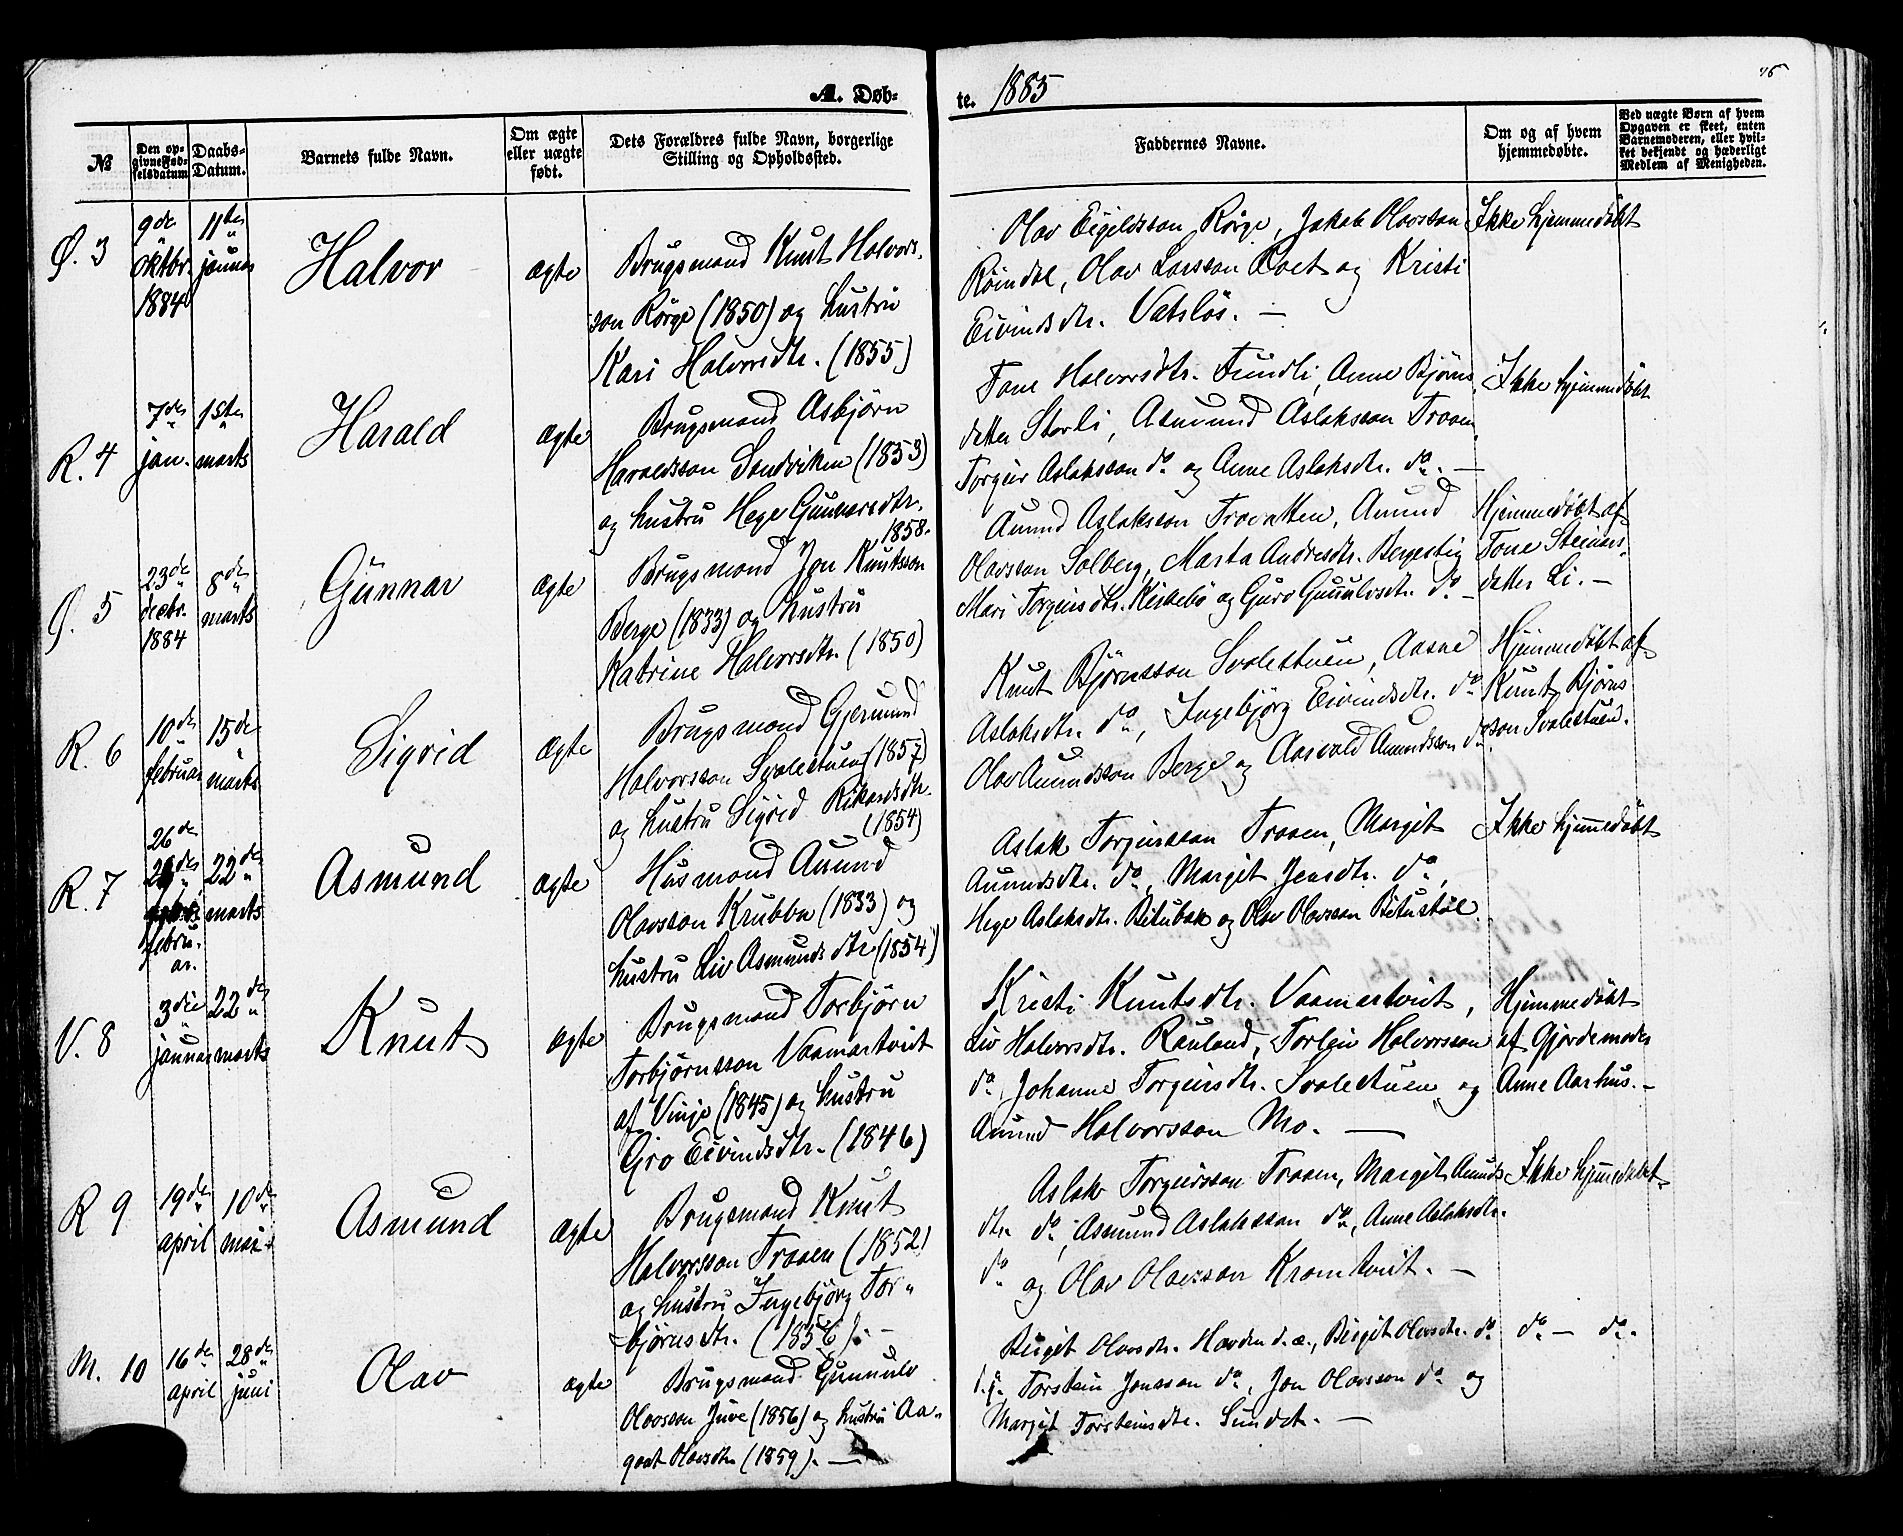 A. Døb-
te. 1885
76
№
Den op-
givne Fød-
selsdatum
Daabs-
Datum.
Barnets fulde Navn.
Om ægte
eller uægte
født.
Dets Forældres fulde Navn, borgerlige
Stilling og Opholdssted.
Faddernes Navne.
Om og af hvem
hjemmedøbte.
Ved uægte Børn af hvem
Opgaven er skeet, enten
Barnemoderen, eller hvil-
ket bekjendt og hæderligt
Medlem af Menigheden.
Ø. 3
9de
oktbr.
1884
11te
januar
Halvor
ægte
Brugsmand Knut Halvors-
son Rørge (1850) og hustru
Kari Halvorsdtr. (1855)
Olav Eigeldsson Rørge, Jakob Olavsson
Olav Larsson og Kristi
Eivindsdtr. Vatsløs. —
Ikke hjemmedøbt
R. 4
7de
jan.
1ste
marts
Harald
ægte
Brugsmand Asbjörn
Haraldsson Sandviken (1853)
og hustru Hege Gunnarsdtr.
1858.
Tone Halvorsdtr. Fundli, Anne Björns
datter Storli, Asmund Aslaksson Traaen,
Torgeir Aslaksson do og Anne Aslaksdtr. do. —
Ikke hjemmedøbt
Ø. 5
23de
decbr.
1884
8de
marts
Gunnar
ægte
Brugsmand Jon Knutsson
Berge (1833) og hustru
Katrine Halvorsdtr. (1850)
Aunund Aslaksson Traaen, Aunund
Olavsson Solberg, Marta Andresdtr. Bergestig
Mari Torgeirsdtr. Kirkebö og Guro Gunulvsdtr. do —
Hjemmedöbt af
Tone Steinars-
datter Li. —
R. 6
10de
februar
15de
marts
Sigrid
ægte
Brugsmand Gjermund
Halvorsson Svalestuen (1857)
og hustru Sigrid Rikardsdtr.
(1854)
Knut Björnsson Svalestuen, Aasne
Aslaksdtr. do, Ingebjörg Eivindsdtr. do
Olav Aunundsson Berge og Aasvald Aunundsson do
Hjemmedöbt af
Knut Björns
son Svalestuen.
R. 7
26de
februar.
22de
marts
Asmund
ægte
Husmand Aunund
Olavsson Krubba (1833) og
hustru Liv Asmundsdtr (1854)
Aslak Torgeirsson Traaen, Margit
Aunundsdtr. do, Margit Jensdtr. do,
Hege Aslaksdtr. Bitubak og Olav Olavsson Bitustöl
Ikke hjemmedöbt
V. 8
3die
januar
22de
marts
Knut
ægte
Brugsmand Torbjörn
Torbjörnsson Vaamartveit
af Vinje (1845) og hustru
Gro Eivindsdtr. (1846)
Kristi Knutsdtr. Vaamartveit,
Liv Halvorsdtr. Rauland, Torleiv Halvorsson
do, Johanne Torgeirsdtr. Svalestuen og
Aunund Halvorsson Mo. —
Hjemmedöbt
af Gjordemoder
Anne Aarhus. —
R 9
19de
april
10de
mai
Asmund
ægte
Brugsmand Knut
Halvorsson Traaen (1852)
og hustru Ingebjörg Tor-
björnsdtr. (1856). —
Aslak Torgeirsson Traaen, Margit Aununds-
dtr. do, Asmund Aslaksson do, Anne Aslaksdtr.
do og Olav Olavsson Kromtveit. —
Ikke hjemmedöbt
M. 10
16de
april
28de
juni
Olav
ægte
Brugsmand Gunnulv
Olavsson Juve (1856) og hustru Aa-
gaat Olavsdtr (1859). —
Birgit Olavsdtr. Havden d. æ., Birgit Olavsdtr. do
d. y. Torstein Jonsson do, Jon Olavsson do og
Margit Torsteinsdtr. Sundet. —
do — do.